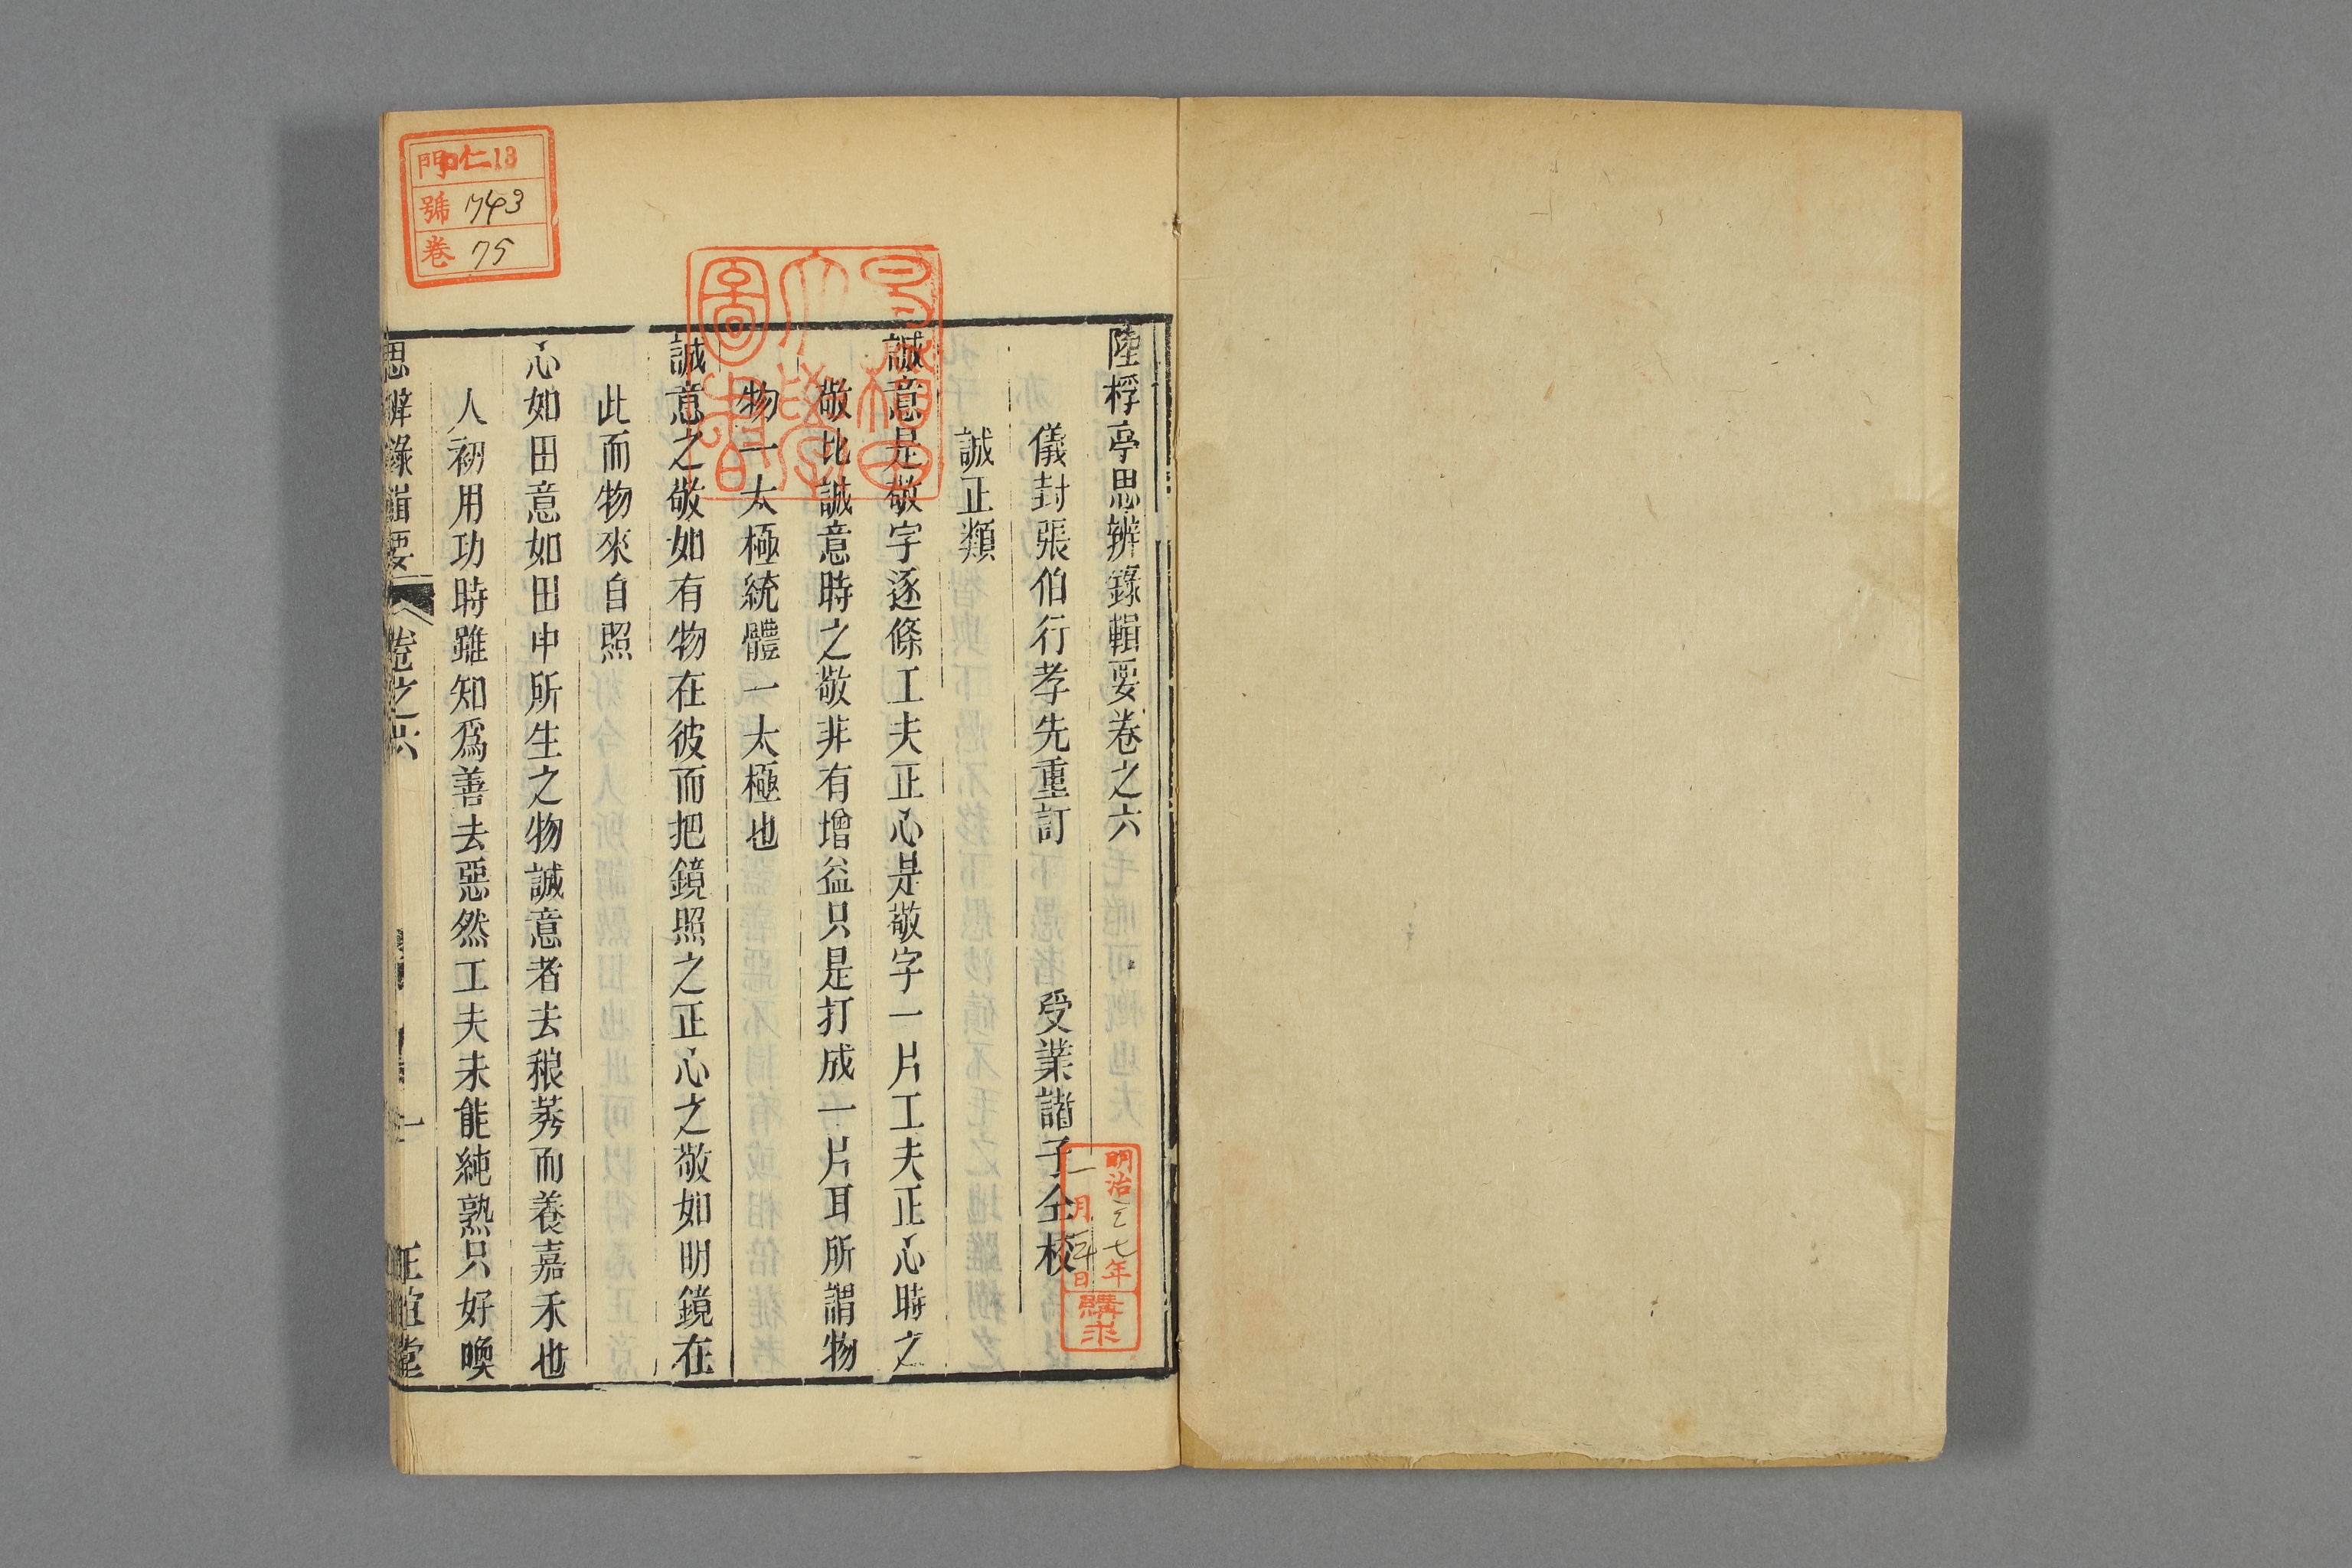 陸桴亭思辨錄輯要卷之六
儀封張伯行孝先重訂 受業諸子仝校
誠正類
誠意是敬字逐條工夫正心是敬字一片工夫正心時之
敬比誠意時之敬非有增益只是打成一片耳所謂物
物一太極統體一太極也
誠意之敬如有物在彼而把鏡照之正心之敬如明鏡在
此而物來自照
心如田意如田中所生之物誠意者去稂莠而養嘉禾也
人初用功時雖知為善去惡然工夫未能純熟只好喚
思辨錄輯要 卷之六 一 正誼堂
門 仁13
號 1743
卷 75
早稲田
大學
圖書
明治三七年
一月
日
購求